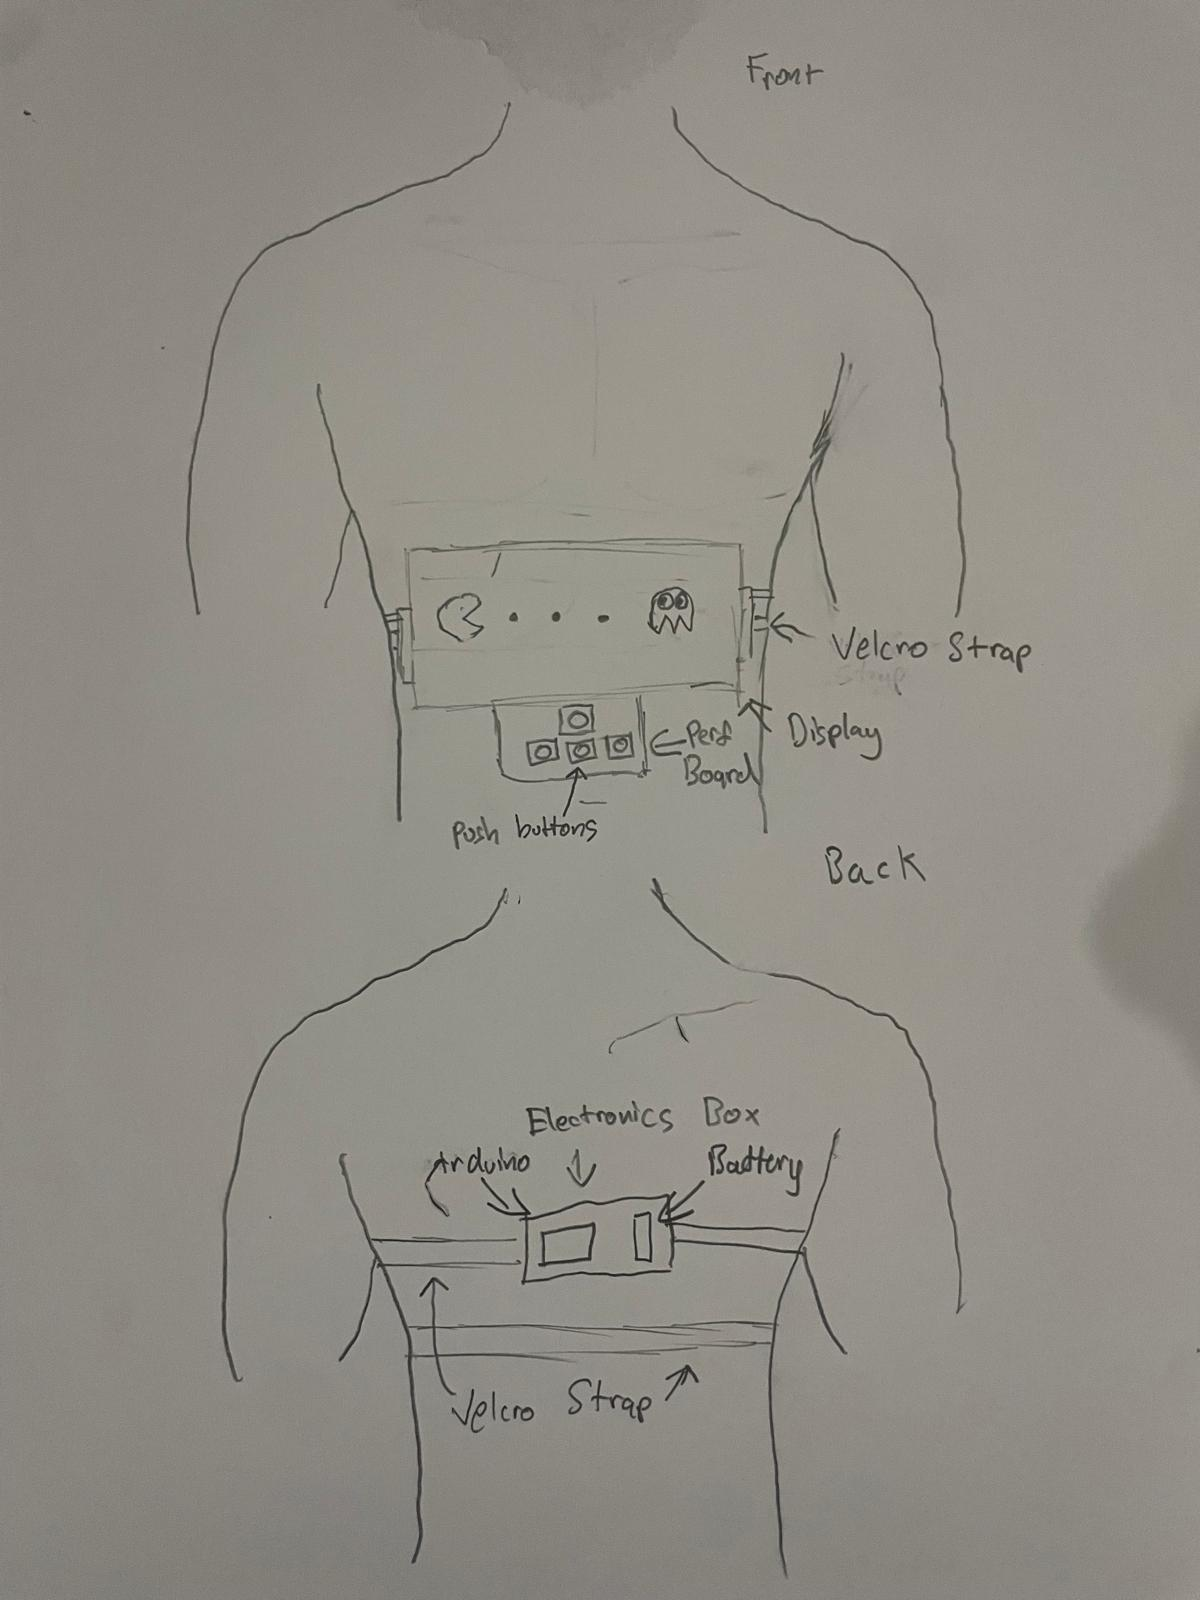 Front
Velcro Strap
Strap
Display
Perf
Board
Push buttons
Back
Electronics Box
Arduino
Battery
Velcro Strap